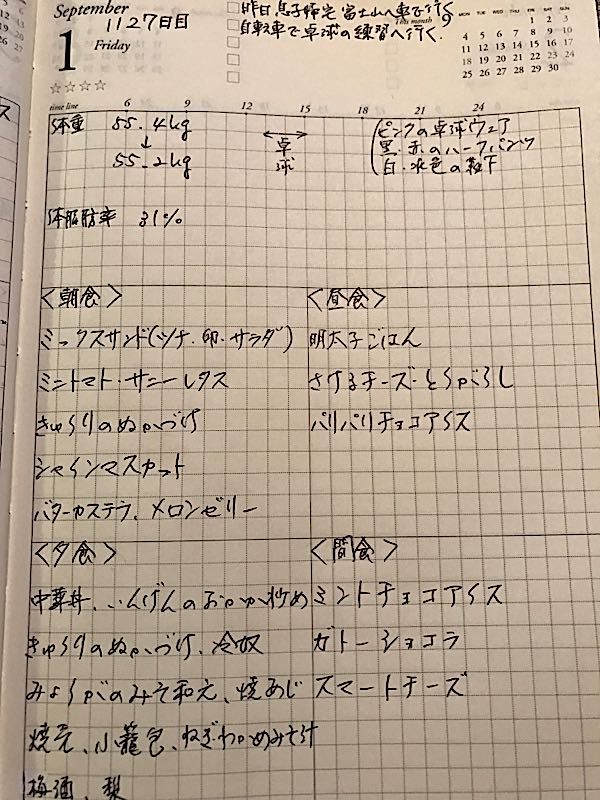 September
1
Friday
1127日目
昨日息子帰宅 富士山へ車で行く
自転車で卓球の練習へ行く.
This month 9
MON TUE WED THU FRI SAT SUN
1 2 3
4 5 6 7 8 9 10
11 12 13 14 15 16 17
18 19 20 21 22 23 24
25 26 27 28 29 30
☆☆☆☆
time line 6 9 12 15 18 21 24
体重 55.4kg
↓
55.2kg
卓球
ピンクの卓球ウェア
黒・赤のハーフパンツ
白・水色の靴下
体脂肪率 31%
<朝食>
ミックスサンド(ツナ・卵・サラダ)
ミニトマト・サニーレタス
きゅうりのぬかづけ
シャインマスカット
バターカステラ、メロンゼリー
<昼食>
明太子ごはん
さけるチーズ・とうがらし
パリパリチョコアイス
<夕食>
中華丼、いんげんのおかか炒め
きゅうりのぬかづけ、冷奴
みょうがのみそ和え、焼あじ
焼売、小籠包、ねぎわかめみそ汁
梅酒、梨
<間食>
ミントチョコアイス
ガトーショコラ
スマートチーズ